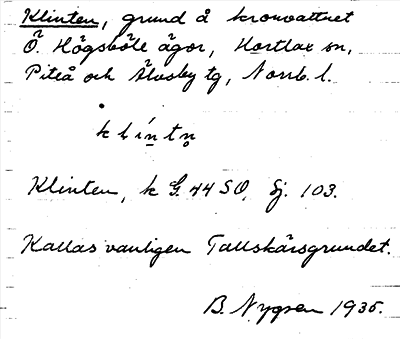 Klinten, grund å kronvattnet
Ö. Högsböle ägor, Hortlax sn,
Piteå och Älvsby tg, Norrb. l.
klíntn̥
Klinten, k G. 44 SO, Sj. 103.
Kallas vanligen Tallskärsgrundet.
B. Nygren 1935.